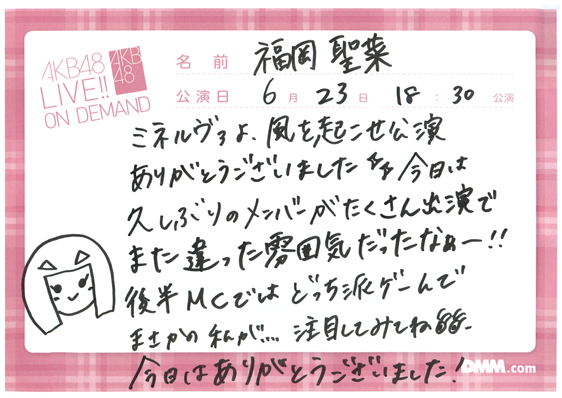 AKB48
LIVE!!
ON DEMAND
AKB
48
名前 福岡 聖菜
公演日 6月 23日 18:30 公演
ミネルヴァよ、風を起こせ公演
ありがとうございました 今日は
久しぶりのメンバーがたくさん出演で
また違った雰囲気だったなぁー!!
後半MCではどっち派ゲームで
まさかの私が… 注目してみてね
今日はありがとうございました!
DMM.com